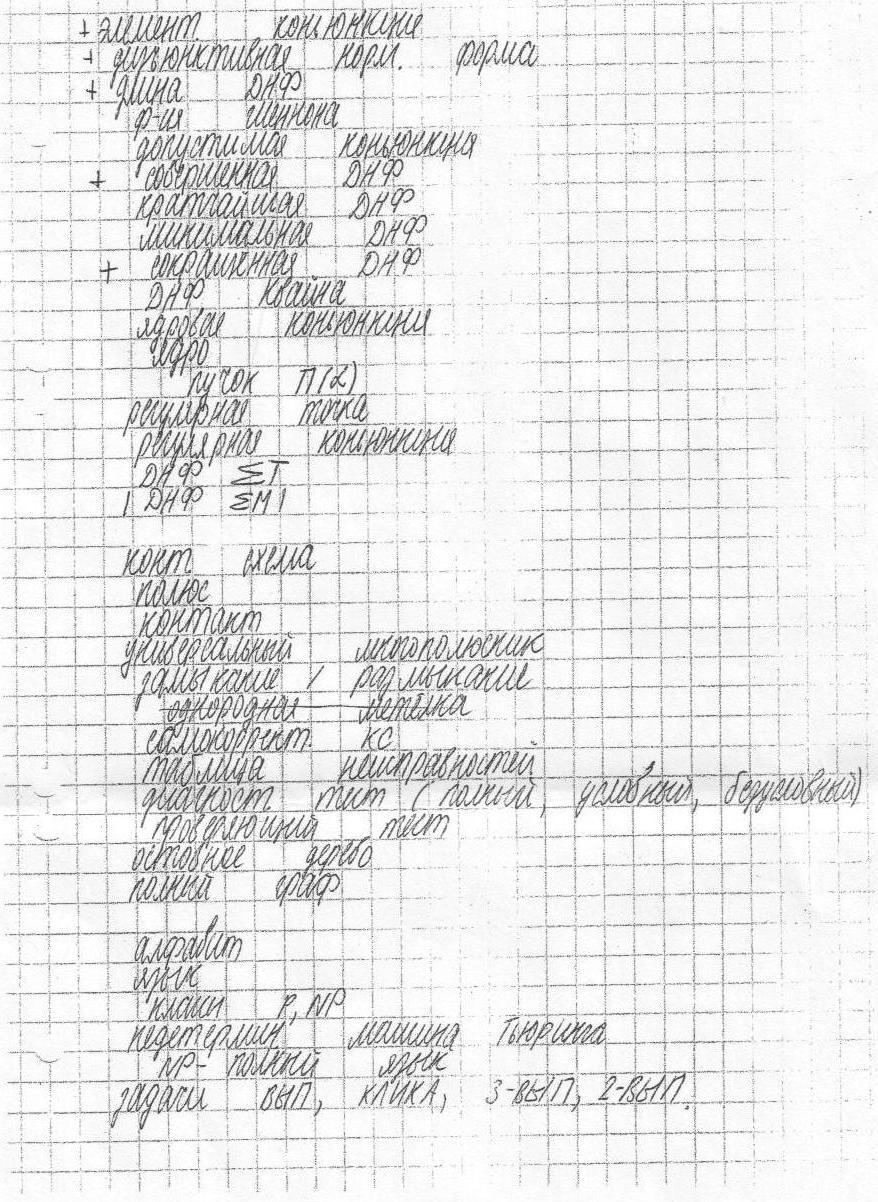 + элемент. конъюнкция
+ дизъюнктивная норм. форма
+ длина ДНФ
ф-ия Шеннона
допустимая конъюнкция
+ совершенная ДНФ
кратчайшая ДНФ
минимальная ДНФ
+ сокращённая ДНФ
ДНФ Квайна
ядровая конъюнкция
ядро
пучок П(α)
регулярная точка
регулярная конъюнкция
ДНФ ΣT
| ДНФ ΣM |
конт. схема
полюс
контакт
универсальный многополюсник
замыкание / размыкание
однородная метёлка
самокоррект. КС
таблица неисправностей
диагност. тест (полный, условный, безусловный)
проверяющий тест
остовное дерево
полный граф
алфавит
язык
классы P, NP
недетермин. машина Тьюринга
NP- полный язык
задачи ВЫП, КЛИКА, 3-ВЫП, 2-ВЫП.